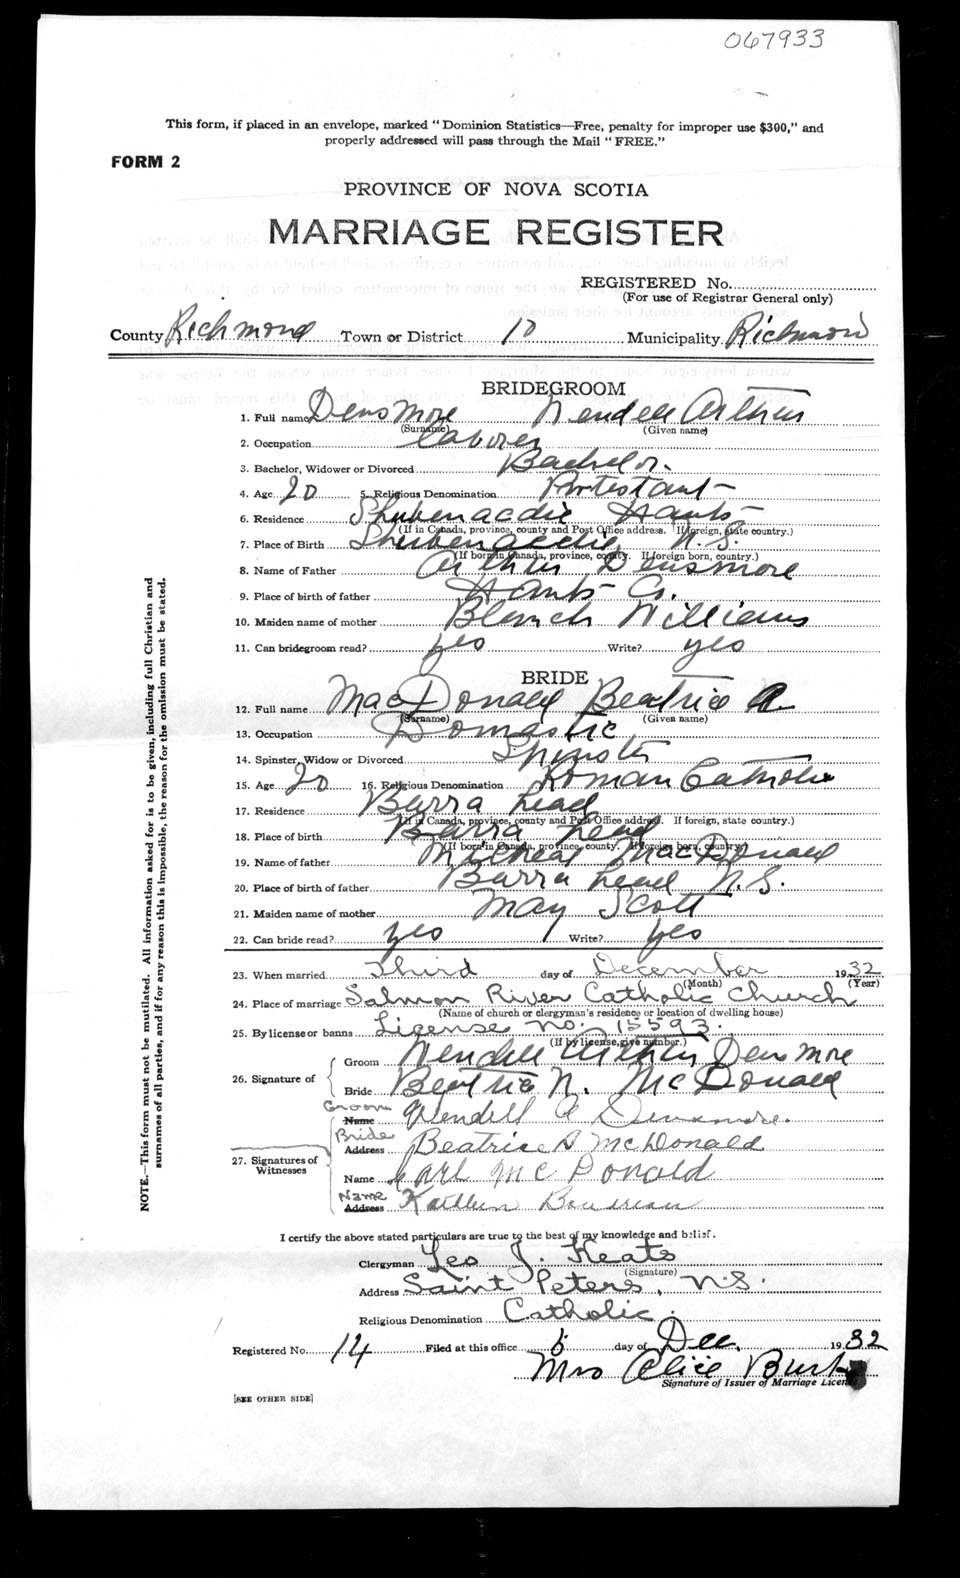 067933
This form, if placed in an envelope, marked "Dominion Statistics—Free, penalty for improper use $300," and
properly addressed will pass through the Mail "FREE."
FORM 2
PROVINCE OF NOVA SCOTIA
MARRIAGE REGISTER
REGISTERED No.
(For use of Registrar General only)
County Richmond Town or District 10 Municipality Richmond
BRIDEGROOM
1. Full name Densmore Wendell Arthur
(Surname) (Given name)
2. Occupation Laborer
3. Bachelor, Widower or Divorced Bachelor.
4. Age 20 5. Religious Denomination Protestant
6. Residence Shubenacdie Hants
(If in Canada, province, county and Post Office address. If foreign, state country.)
7. Place of Birth Shubenacdie N.S.
(If born in Canada, province, county. If foreign born, country.)
8. Name of Father Arthur Densmore
9. Place of birth of father Hants Co.
10. Maiden name of mother Blanch Williams
11. Can bridegroom read? yes Write? yes
BRIDE
12. Full name MacDonald Beatrice A
(Surname) (Given name)
13. Occupation Domestic
14. Spinster, Widow or Divorced Spinster
15. Age 20 16. Religious Denomination Roman Catholic
17. Residence Barra head
(If in Canada, province, county and Post Office address. If foreign, state country.)
18. Place of birth Barra head
(If born in Canada, province, county. If foreign born, country.)
19. Name of father Micheal MacDonald
20. Place of birth of father Barra head N.S.
21. Maiden name of mother May Scott
22. Can bride read? yes Write? yes
23. When married Third day of December 1932
(Month) (Year)
24. Place of marriage Salmon River Catholic Church
(Name of church or clergyman's residence or location of dwelling house)
25. By license or banns License no. 15593.
(If by license, give number.)
26. Signature of
Groom Wendell Arthur Densmore
Bride Beatrice N. McDonald
27. Signatures of Witnesses
Groom Name Wendell A Densmore.
Bride Address Beatrice A McDonald
Name Karl McDonald
Name Address Kathleen Boudreau
I certify the above stated particulars are true to the best of my knowledge and belief.
Clergyman Leo J. Keats
(Signature)
Address Saint Peters, N.S.
Religious Denomination Catholic.
Registered No. 14 Filed at this office 6 day of Dec. 1932
Mrs Alice Burk
Signature of Issuer of Marriage License
[SEE OTHER SIDE]
NOTE.—This form must not be mutilated. All information asked for is to be given, including full Christian and
surnames of all parties, and if for any reason this is impossible, the reason for the omission must be stated.